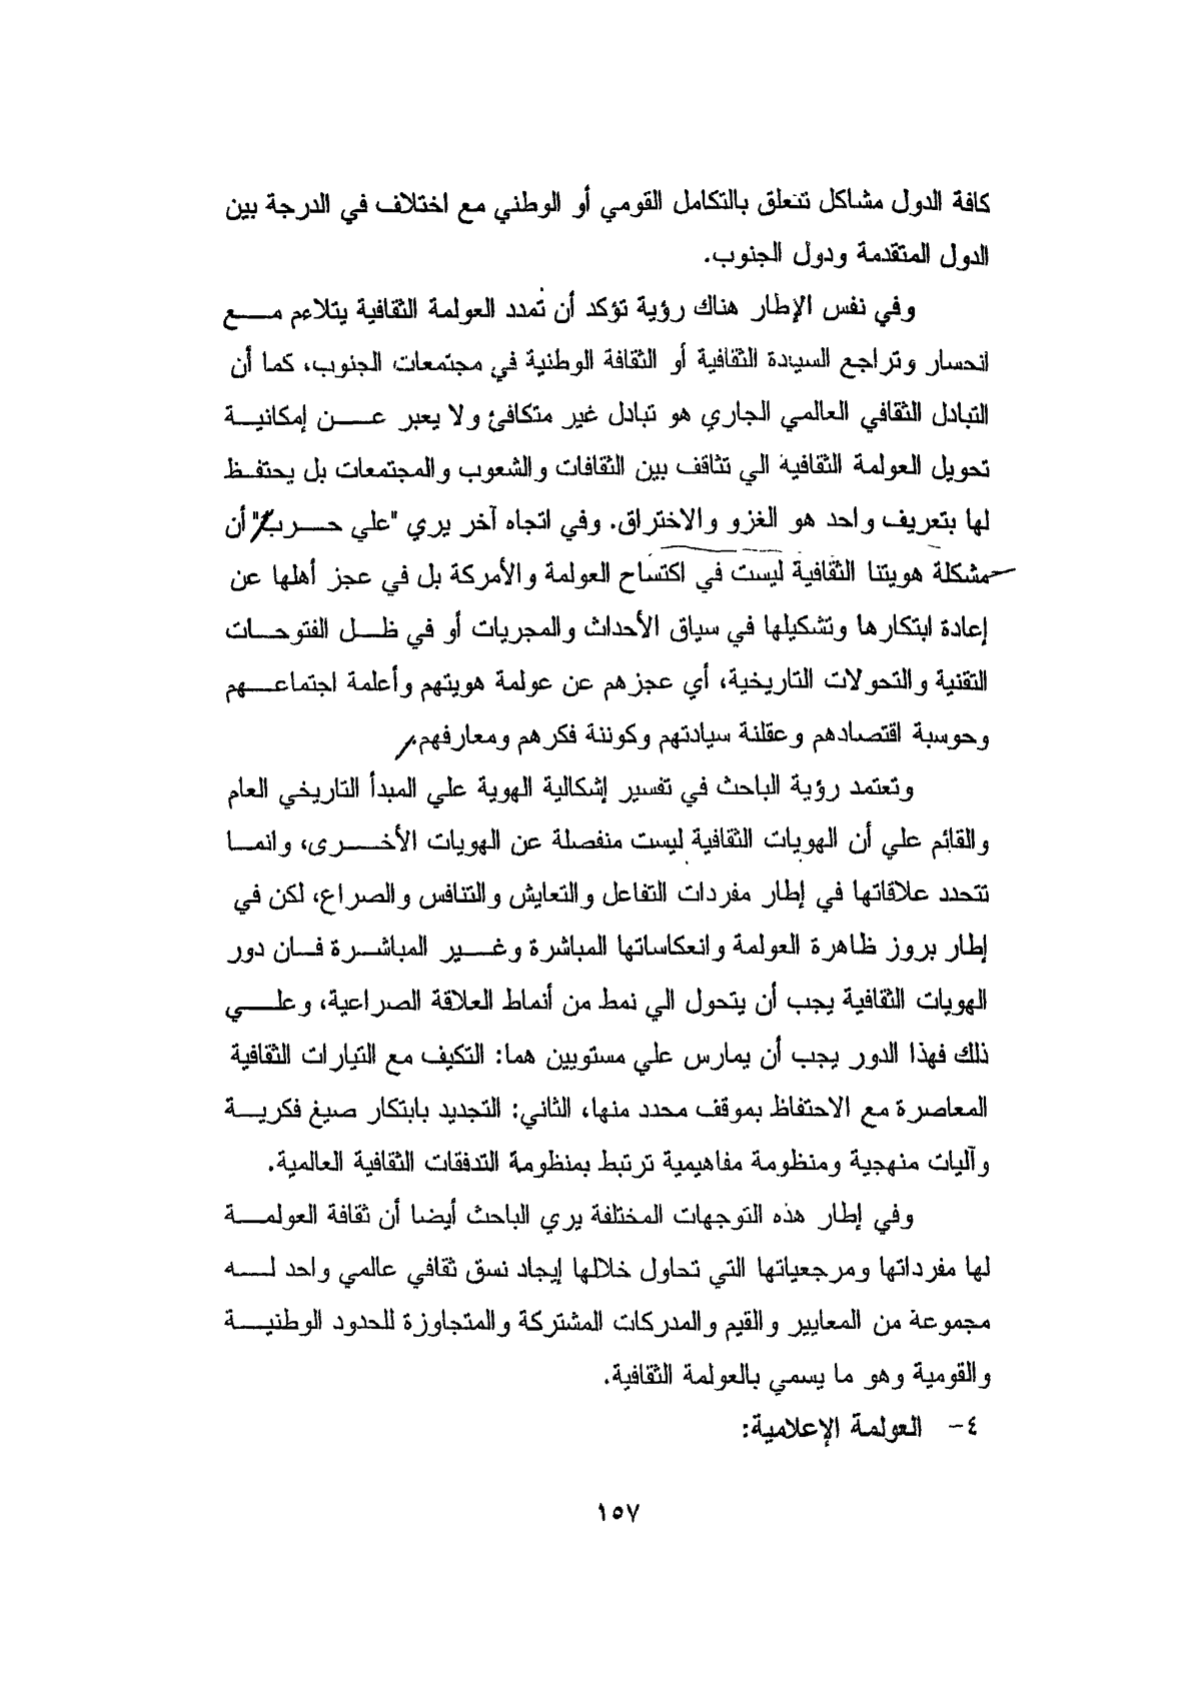 كافة الدول مشاكل تتعلق بالتكامل القومي أو الوطني مع اختلاف في الدرجة بين
الدول المتقدمة ودول الجنوب.
وفي نفس الإطار هناك رؤية تؤكد أن تمدد العولمة الثقافية يتلاءم مع
انحسار وتراجع السيادة الثقافية أو الثقافة الوطنية في مجتمعات الجنوب، كما أن
التبادل الثقافي العالمي الجاري هو تبادل غير متكافئ ولا يعبر عن إمكانية
تحويل العولمة الثقافية الي تثاقف بين الثقافات والشعوب والمجتمعات بل يحتفظ
لها بتعريف واحد هو الغزو والاختراق. وفي اتجاه آخر يري "علي حرب" أن
مشكلة هويتنا الثقافية ليست في اكتساح العولمة والأمركة بل في عجز أهلها عن
إعادة ابتكارها وتشكيلها في سياق الأحداث والمجريات أو في ظل الفتوحات
التقنية والتحولات التاريخية، أي عجزهم عن عولمة هويتهم وأعلمة اجتماعهم
وحوسبة اقتصادهم وعقلنة سيادتهم وكوننة فكرهم ومعارفهم.
وتعتمد رؤية الباحث في تفسير إشكالية الهوية علي المبدأ التاريخي العام
والقائم علي أن الهويات الثقافية ليست منفصلة عن الهويات الأخرى، وانما
تتحدد علاقاتها في إطار مفردات التفاعل والتعايش والتنافس والصراع، لكن في
إطار بروز ظاهرة العولمة وانعكاساتها المباشرة وغير المباشرة فان دور
الهويات الثقافية يجب أن يتحول الي نمط من أنماط العلاقة الصراعية، وعلي
ذلك فهذا الدور يجب أن يمارس علي مستويين هما: التكيف مع التيارات الثقافية
المعاصرة مع الاحتفاظ بموقف محدد منها، الثاني: التجديد بابتكار صيغ فكرية
وآليات منهجية ومنظومة مفاهيمية ترتبط بمنظومة التدفقات الثقافية العالمية.
وفي إطار هذه التوجهات المختلفة يري الباحث أيضا أن ثقافة العولمة
لها مفرداتها ومرجعياتها التي تحاول خلالها إيجاد نسق ثقافي عالمي واحد له
مجموعة من المعايير والقيم والمدركات المشتركة والمتجاوزة للحدود الوطنية
والقومية وهو ما يسمي بالعولمة الثقافية.
٤- العولمة الإعلامية:
١٥٧